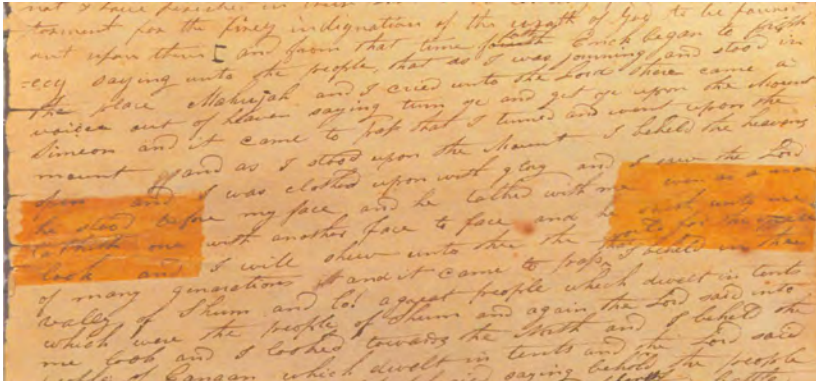 not I have
torment for the firey indignation of the wrath of God to be poured
out upon them [ and from that time forth Enoch began to proph
=ecy saying unto the people, that as I was journing and stood in
the place Mahujah and I cried unto the Lord there came a
voice out of heaven saying turn ye and get ye upon the mount
Simeon and it came to pass that I turned and went upon the
mount and as I stood upon the Mount I beheld the heavens
open and I was clothed upon with glory and I saw the Lord
he stood before my face and he talked with me even as a man
talketh one with another face to face and he saith unto me
look and I will shew unto thee the world for the space
of many generations and it came to pass I beheld in the
valley of Shum and lo! a great people which dwelt in tents
which were the people of Shum and again the Lord said unto
me look and I looked towards the North and I beheld the
people of Canaan which dwelt in tents and the Lord said
saying behold the people